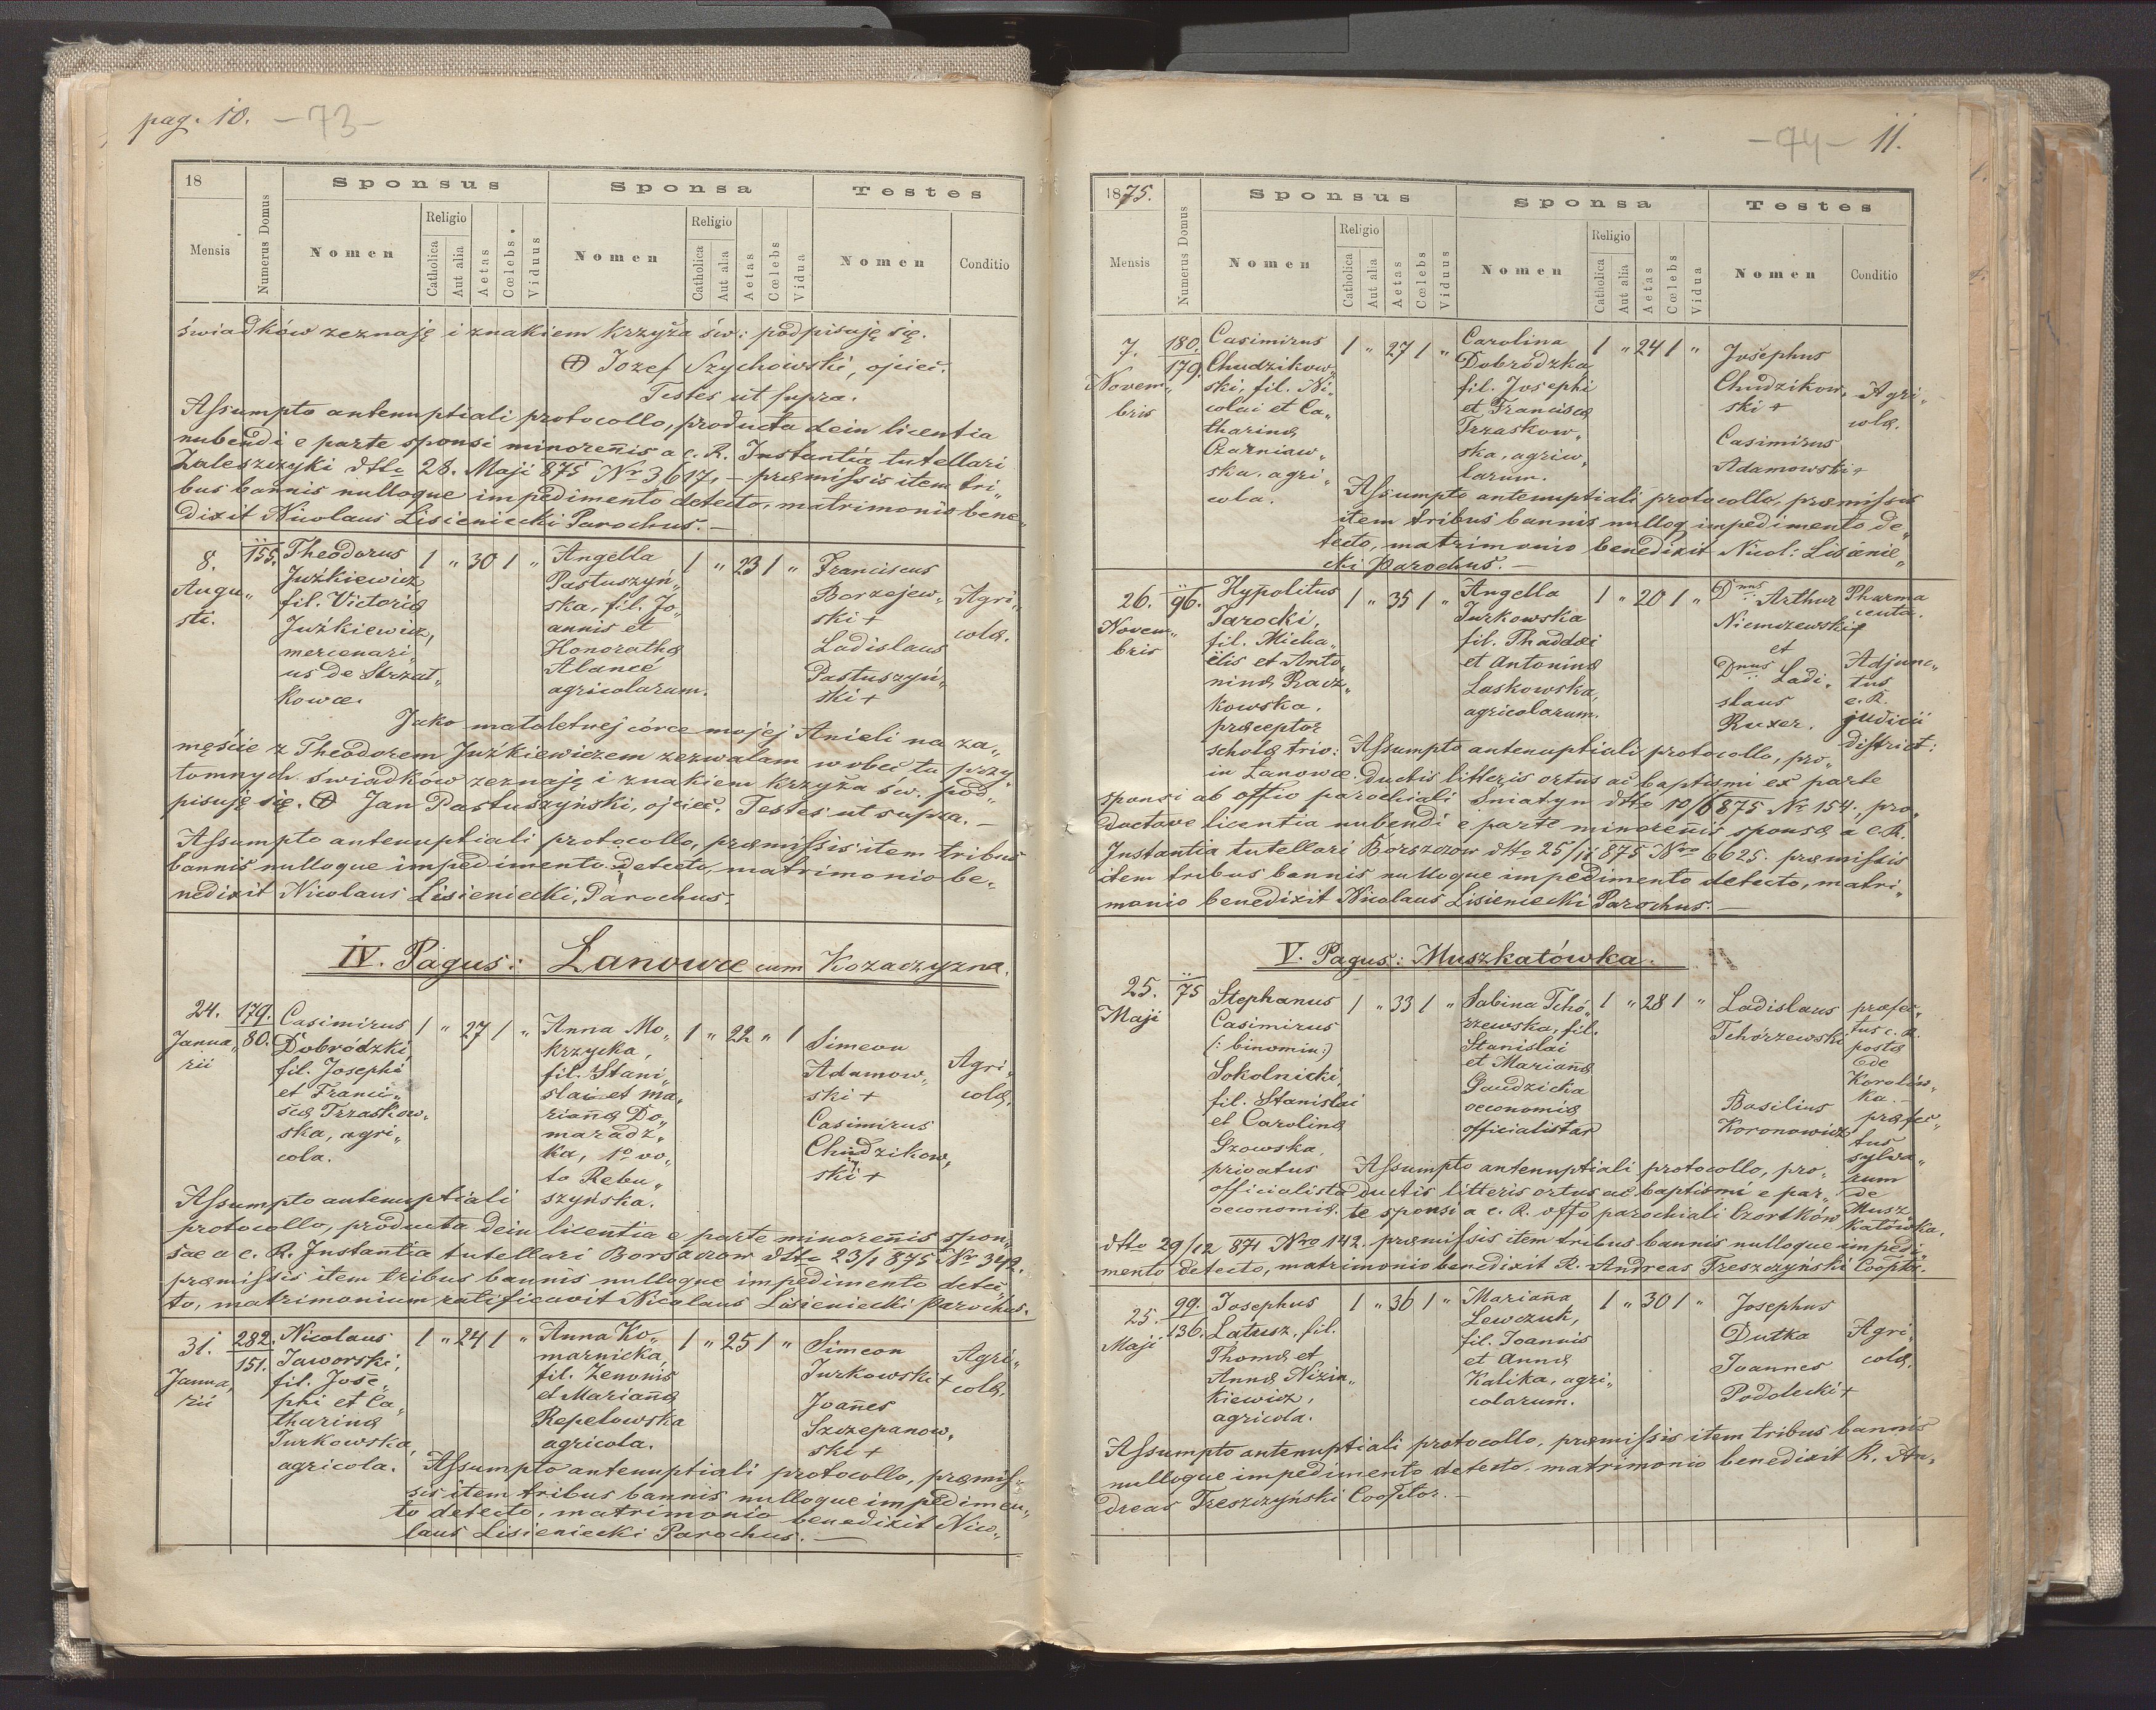 pag. 10. -73-
18
Sponsus
Sponsa
Testes
Mensis
Numerus Domus
Nomen
Religio
Catholica
Aut alia
Aetas
Cœlebs
Viduus
Nomen
Religio
Catholica
Aut alia
Aetas
Cœlebs
Vidua
Nomen
Conditio
świadków zeznaję i znakiem krzyża św: podpisuję się.
Jozef Szychowski, ojciec.
Testes ut supra.
Assumpto antenuptiali protocollo, producta dein licentia
nubendi e parte sponsi minoren̄is a c. R. Instantia tutellari
Zaleszczyki dtto 28. Maji 875 Nr 3617, – præmissis item tri„
bus bannis nulloque impedimento detecto, matrimonio bene„
dixit Nicolaus Lisieniecki Parochus. –
8.
Augu„
sti.
155.
Theodorus
Juźkiewicz
fil. Victoriæ
Juźkiewicz,
mercenari„
us de Strzał„
kowce.
1 „ 30 1 „
Angella
Pastuszyń„
ska, fil. Jo„
annis et
Honorathæ
Alancé
agricolarum.
1 „ 23 1 „
Franciscus
Borzejew„
ski +
Ladislaus
Pastuszyń„
ski +
Agri„
colæ.
Jako małoletnej córce mojej Anieli na za„
męście z Theodorem Juźkiewiczem zezwalam wobec tu przy„
tomnych świadków zeznaję i znakiem krzyża św. pod„
pisuję się. Jan Pastuszyński, ojciec. Testes ut supra. –
Assumpto antenuptiali protocollo, præmissis item tribus
bannis nulloque impedimento detecto, matrimonio be„
nedixit Nicolaus Lisieniecki, Parochus.
IV. Pagus: Łanowce cum Kozaczyzna.
24.
Janua„
rii
179.
80.
Casimirus
Dobródzki,
fil. Josephi
et Franci„
scæ Trzaskow„
ska, agri„
cola.
1 „ 27 1 „
Anna Mo„
krzycka,
fil. Stani„
slai et Ma„
rian̄æ Do„
maradz„
ka, 1º vo„
to Rebu„
szyńska.
1 „ 22 „ 1
Simeon
Adamow„
ski +
Casimirus
Chudzikow„
ski +
Agri„
colæ.
Assumpto antenuptiali
protocollo, producta dein licentia e parte minoren̄is spon„
sae a c. R. Instantia tutellari Borszczow dtto 23/1 875 Nr 342.
præmissis item tribus bannis nulloque impedimento detec„
to, matrimonium ratificavit Nicolaus Lisieniecki Parochus.
31.
Janua„
rii
282.
151.
Nicolaus
Jaworski,
fil. Jose„
phi et Ca„
tharinæ
Jurkowska,
agricola.
1 „ 24 1 „
Anna Ko„
marnicka,
fil. Zenonis
et Marian̄æ
Repelowska
agricola.
1 „ 25 1 „
Simeon
Jurkowski +
Joan̄es
Szczepanow„
ski +
Agri„
colæ.
Assumpto antenuptiali protocollo, præmis„
sis item tribus bannis nulloque impedimen„
to detecto, matrimonio benedixit Nico„
laus Lisieniecki Parochus. –
-74- 11.
1875.
Sponsus
Sponsa
Testes
Mensis
Numerus Domus
Nomen
Religio
Catholica
Aut alia
Aetas
Cœlebs
Viduus
Nomen
Religio
Catholica
Aut alia
Aetas
Cœlebs
Vidua
Nomen
Conditio
7.
Novem„
bris
180.
179.
Casimirus
Chudzikow„
ski, fil. Ni„
colai et Ca„
tharinæ
Czarniaw„
ska, agri„
cola.
1 „ 27 1 „
Carolina
Dobródzka,
fil. Josephi
et Franciscæ
Trzaskow„
ska, agrico„
larum.
1 „ 24 1 „
Josephus
Chudzikow„
ski +
Casimirus
Adamowski +
Agri„
colæ.
Assumpto antenuptiali protocollo, præmissis
item tribus bannis nulloq impedimento de„
tecto, matrimonio benedixit Nicol: Lisienie„
cki Parochus. –
26.
Novem„
bris
96.
Hypolitus
Tarocki,
fil. Micha„
ëlis et Anto„
ninæ Racz„
kowska,
præceptor
scholæ triv:
in Łanowce.
1 „ 35 1 „
Angella
Jurkowska
fil. Thaddæi
et Antoninæ
Laskowska,
agricolarum.
1 „ 20 1 „
Dnus Arthur
Niemczewski
et
Dnus Ladi„
slaus
Ruxer.
Pharma
ceuta.
Adjunc„
tus
c. R.
judicii
district:
Assumpto antenuptiali protocollo, pro„
ductis litteris ortus ac baptismi ex parte
sponsi ab offio parochiali Śniatyn dtto 10/6 875 Nr 154., pro„
ductave licentia nubendi e parte minoren̄is sponsæ a c. R.
Instantia tutellari Borszczow dtto 25/11 875 Nro 6625. præmissis
item tribus bannis nulloque impedimento detecto, matri„
monio benedixit Nicolaus Lisieniecki Parochus. –
V. Pagus: Muszkatówka.
25.
Maji
75
Stephanus
Casimirus
(: binomin:)
Sokolnicki,
fil. Stanislai
et Carolinæ
Gzowska,
privatus
officialista
oeconomiæ.
1 „ 33 1 „
Sabina Tchó„
rzewska, fil.
Stanislai
et Marian̄æ
Gaudzicka
oeconomiæ
officialistar
1 „ 28 1 „
Ladislaus
Tchórzewski
Basilius
Koronowicz
præfec„
tus c. R.
postæ
de
Korolów„
ka. –
præfec„
tus
sylva„
rum
de
Musz„
katówka.
Assumpto antenuptiali protocollo, pro„
ductis litteris ortus ac baptismi e par„
te sponsi a c. R. offo parochiali Czortków
dtto 29/12 871 Nro 142. præmissis item tribus bannis nulloque impedi„
mento detecto, matrimonio benedixit R. Andreas Treszczyński Cooptor.
25.
Maji
99.
136.
Josephus
Latusz, fil.
Thomæ et
Annæ Nizin„
kiewicz,
agricola.
1 „ 36 1 „
Marian̄a
Lewczuk,
fil. Joannis
et Annæ
Kalika, agri„
colarum.
1 „ 30 1 „
Josephus
Dutka
Joannes
Podolecki +
Agri„
colæ.
Assumpto antenuptiali protocollo, præmissis item tribus bannis
nulloque impedimento detecto, matrimonio benedixit R. An„
dreas Treszczyński Cooptor. –